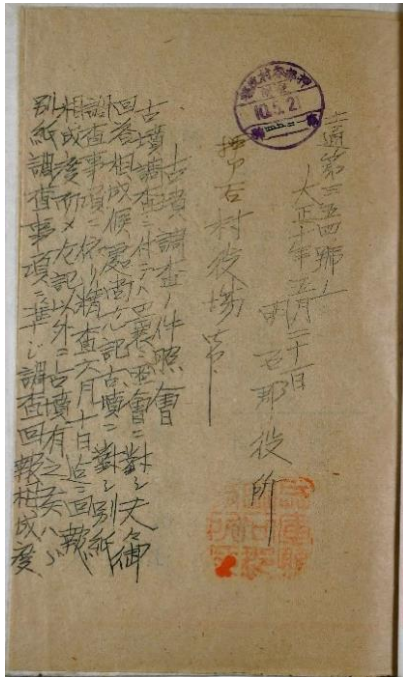 第三五四號ノ一
大正十年五月二十一日
明石郡役所
村役場
10.5.21
古墳調査ノ件照會
古墳調査ニ付テハ曩ニ照會ニ對シ夫々御
回答相成候處尚左記古墳ニ對シ別紙
調査事項ニ依リ精査六月十日迄ニ回報
相成度而メ左記以外ニ古墳有之候ハヾ
別紙調査事項ニ準シ調査回報相成度